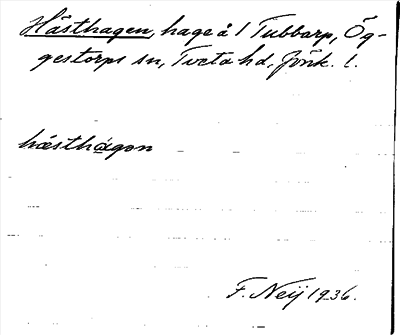 Hästhagen, hage å 1 Tubbarp, Ög-
gestorps sn, Tveta hd, Jönk. l.
hästhagon
F. Neij 1936.